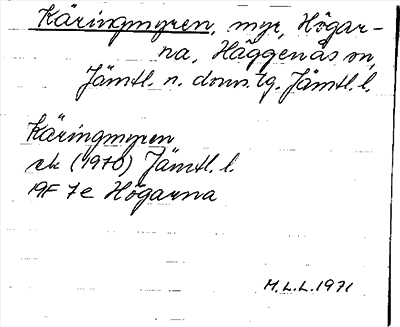 Käringmyren, myr, Högar-
na, Häggenås sn,
Jämtl. n. doms. tg. Jämtl. l.
Käringmyren
ek (1970) Jämtl. l.
19F 7e Högarna
M.L.L. 1971